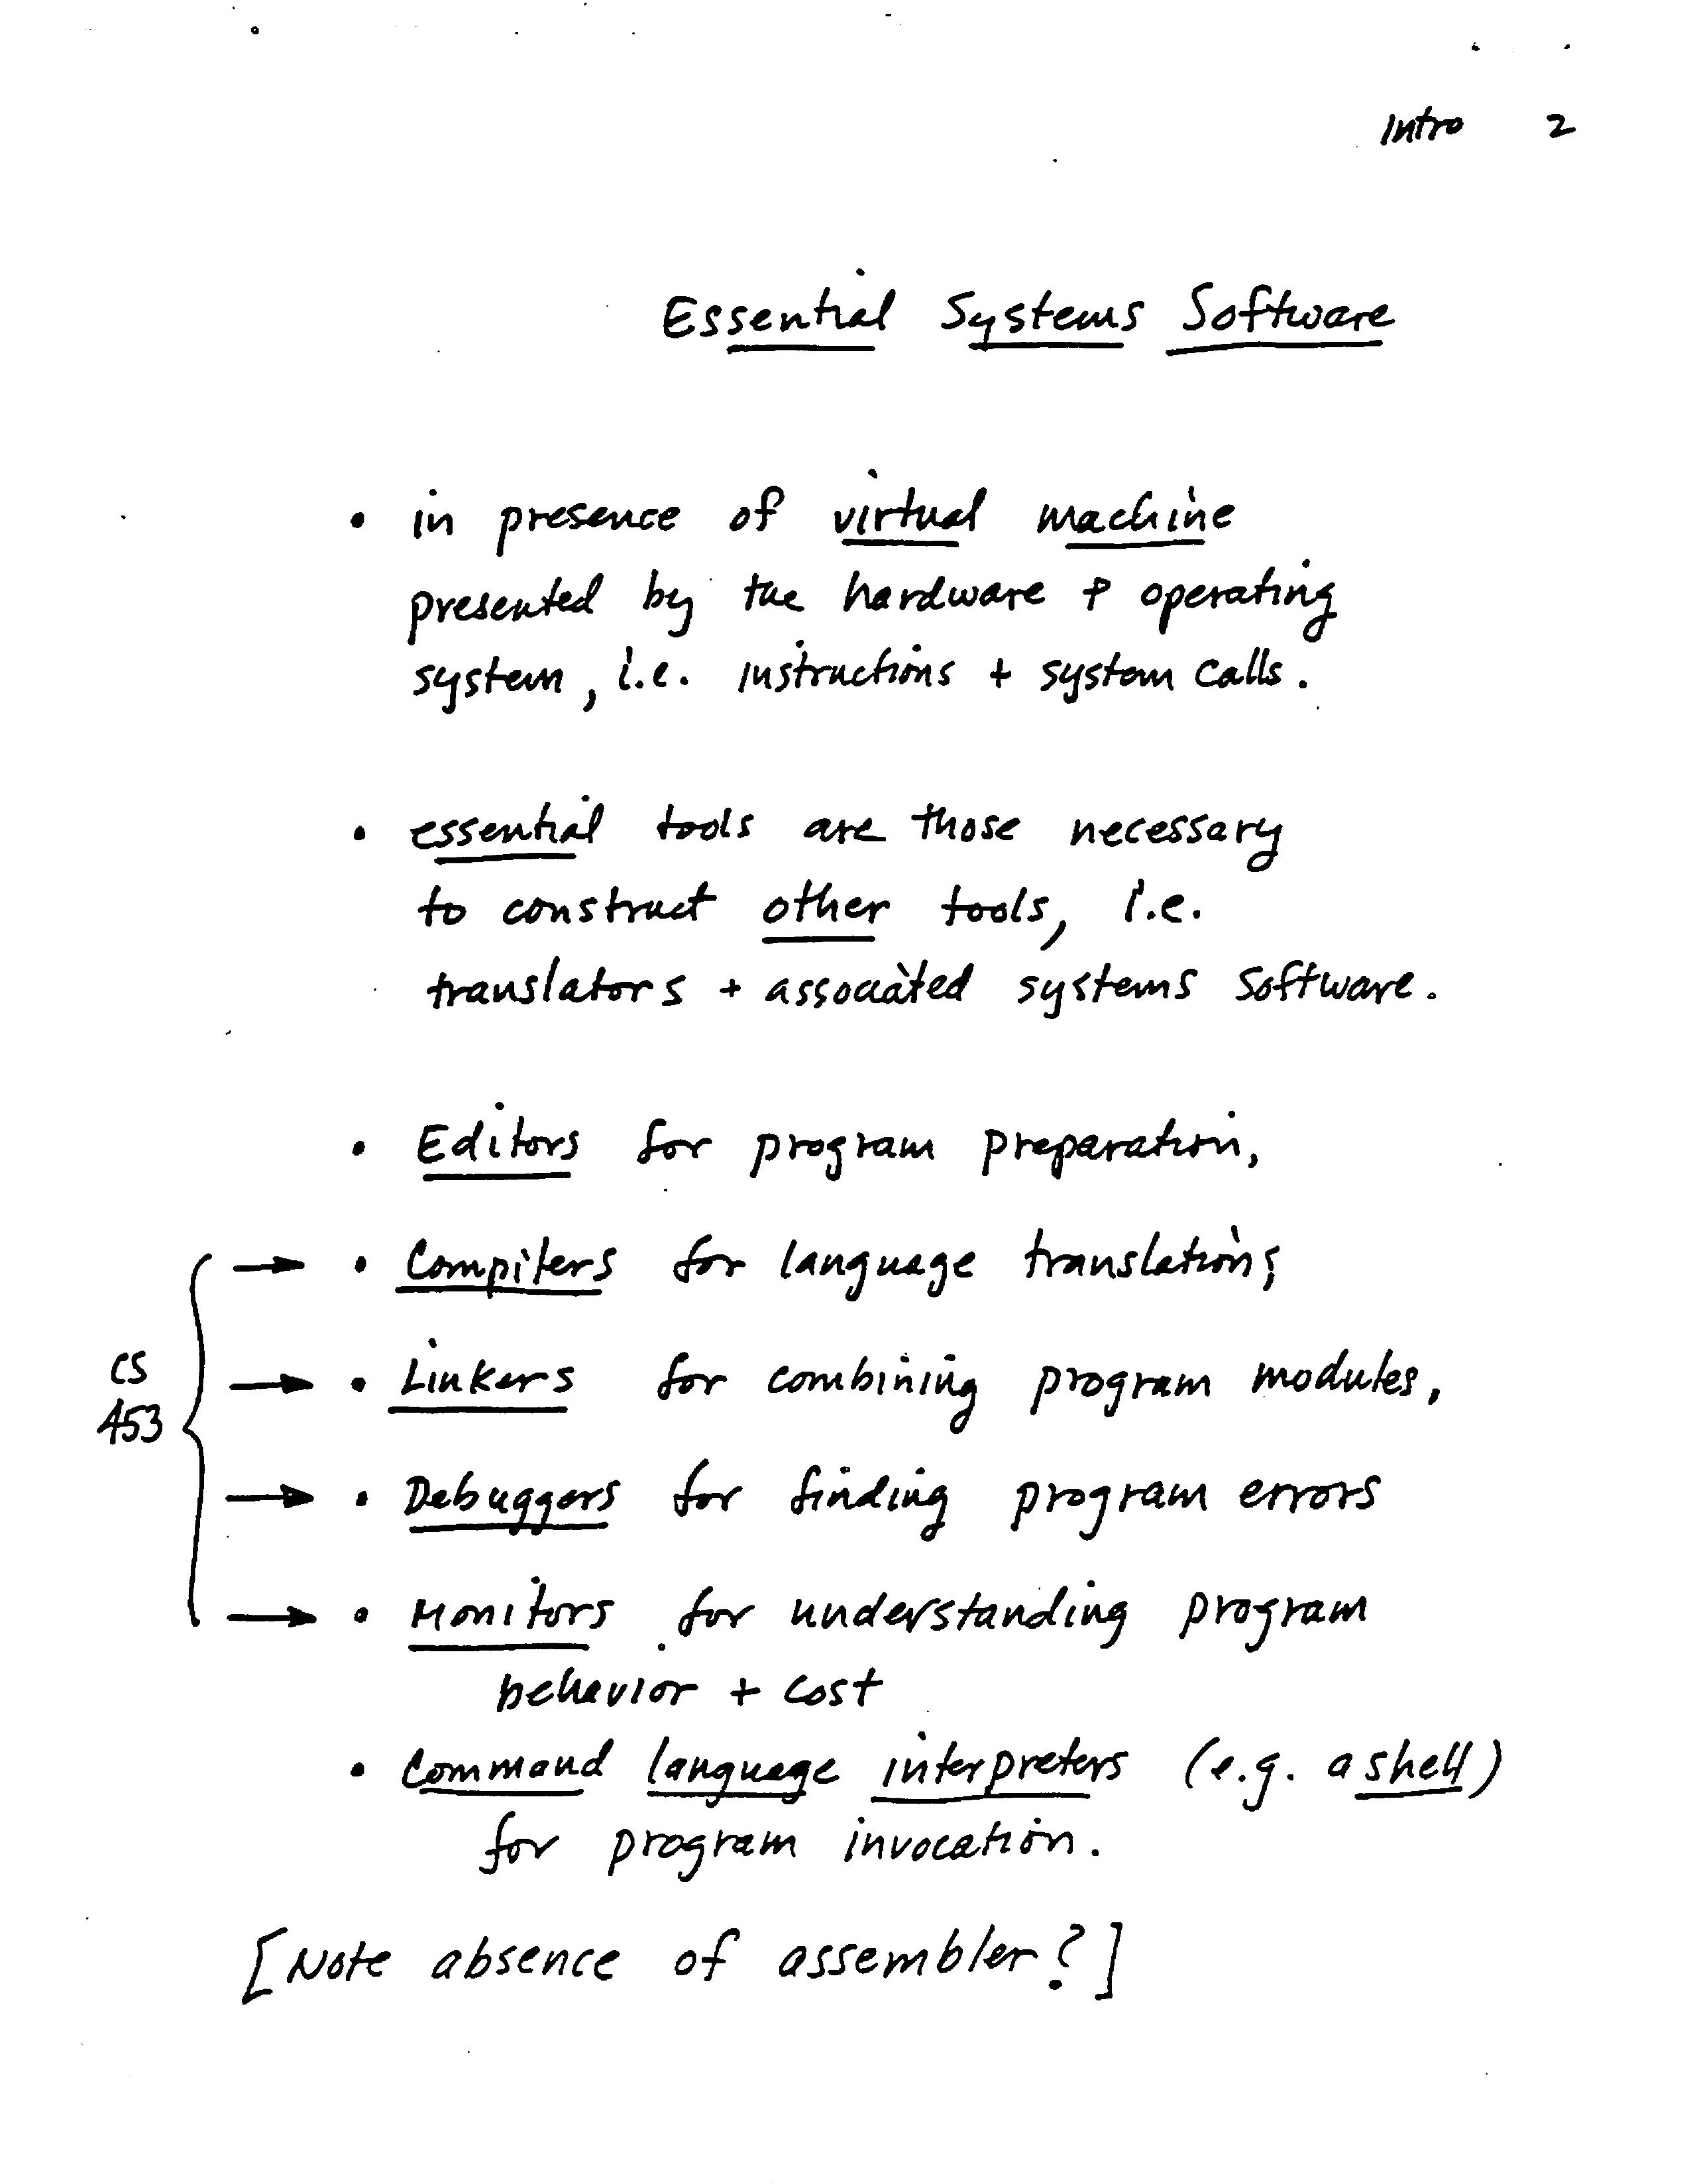 Intro 2
Essential Systems Software
• in presence of virtual machine
presented by the hardware + operating
system, i.e. instructions + system calls.
• essential tools are those necessary
to construct other tools, i.e.
translators + associated systems software.
• Editors for program preparation,
→ • Compilers for language translation,
CS
453
→ • Linkers for combining program modules,
→ • Debuggers for finding program errors
→ • Monitors for understanding program
behavior + cost
• Command language interpreters (e.g. a shell)
for program invocation.
[Note absence of assembler?]